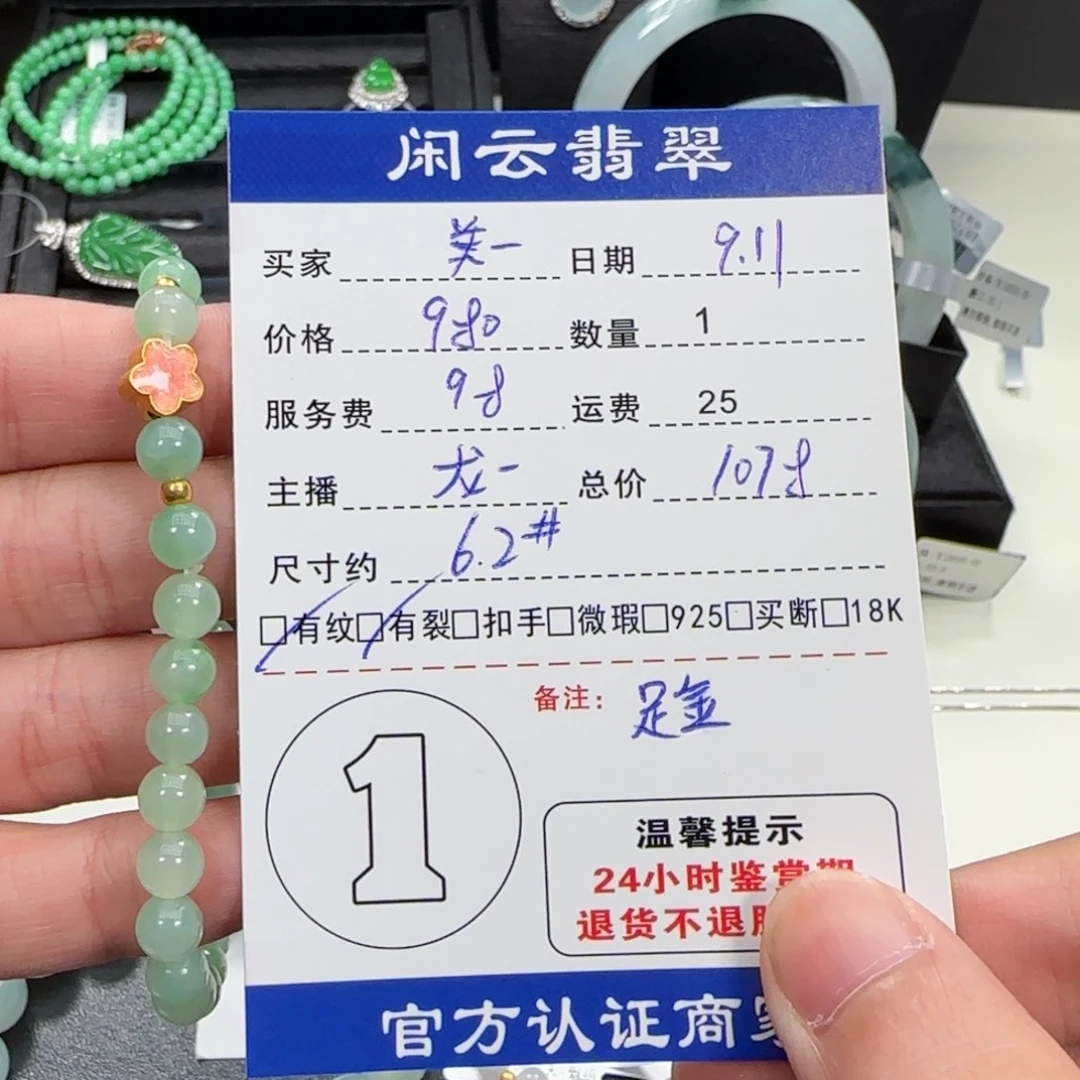 闲云翡翠
买家 美一 日期 9.11
价格 980 数量 1
服务费 98 运费 25
主播 龙一 总价 1078
尺寸约 6.2#
□有纹□有裂□扣手□微瑕□925□买断□18K
备注: 足金
1
温馨提示
24小时鉴赏期
退货不退服
官方认证商家